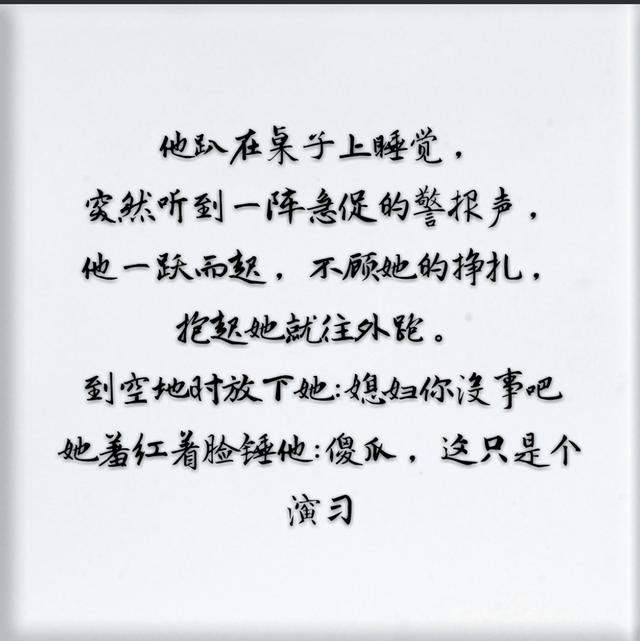 他趴在桌子上睡觉，
突然听到一阵急促的警报声，
他一跃而起，不顾她的挣扎，
抱起她就往外跑。
到空地时放下她:媳妇你没事吧
她羞红着脸锤他:傻瓜，这只是个
演习